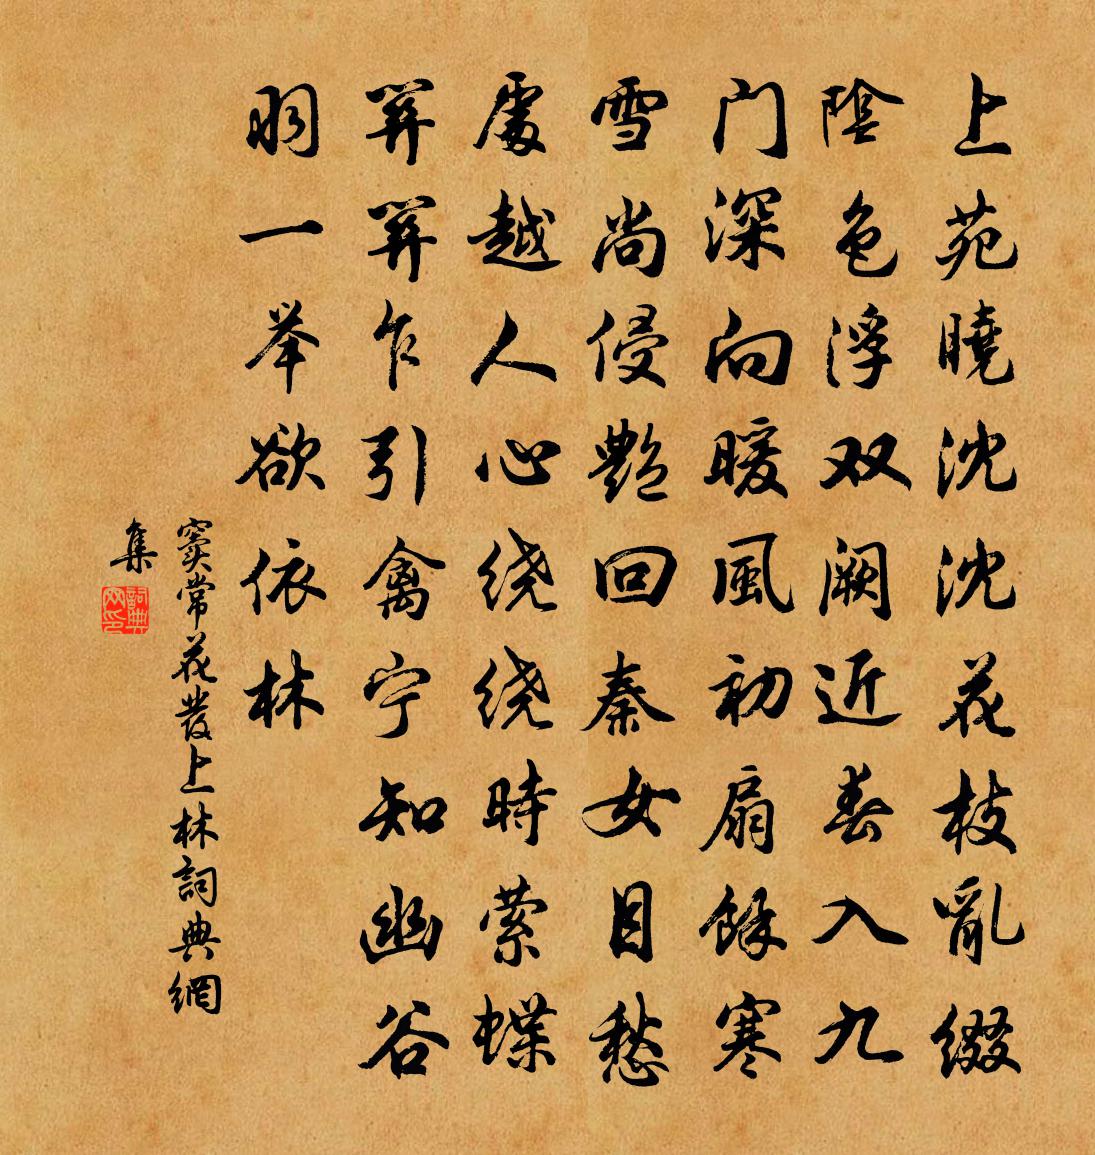 上苑曉沈沈花枝亂缀
陰色浮双阙近春入九
门深向暖風初扇餘寒
雪尚侵艷回秦女目愁
處越人心绕绕時萦蝶
关关乍引禽宁知幽谷
羽一举欲依林
窦常花發上林詞典網
集
詞典
网印